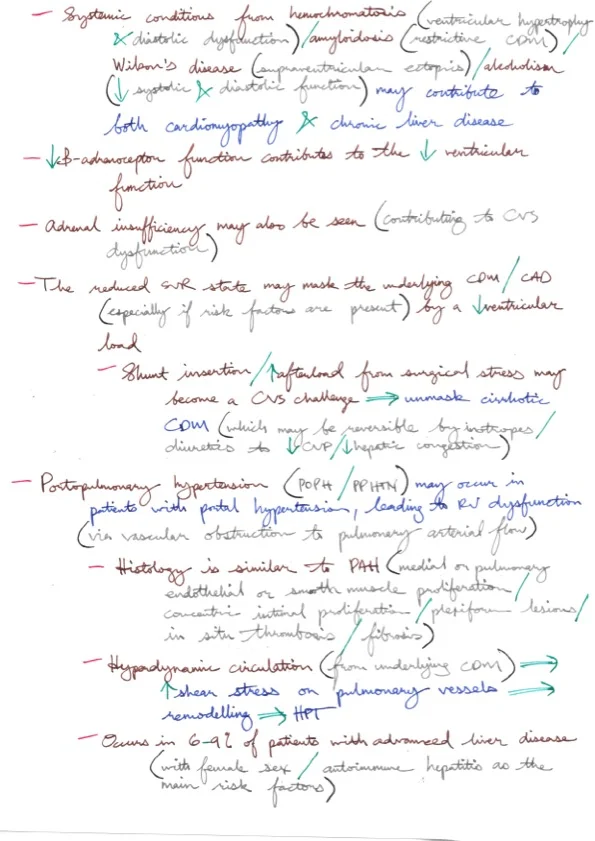 - Systemic conditions from hemochromatosis (ventricular hypertrophy
& diastolic dysfunction) / amyloidosis (restrictive CDM) /
Wilson's disease (supraventricular ectopics) / alcoholism
(↓ systolic & diastolic function) may contribute to
both cardiomyopathy & chronic liver disease
- ↓β-adrenoceptor function contributes to the ↓ ventricular
function
- Adrenal insufficiency may also be seen (contributing to CVS
dysfunction)
- The reduced SVR state may mask the underlying CDM / CAD
(especially if risk factors are present) by a ↓ventricular
load
- Shunt insertion / ↑afterload from surgical stress may
become a CVS challenge ⇒ unmask cirrhotic
CDM (which may be reversible by inotropes /
diuretics to ↓CVP / ↓hepatic congestion)
- Portopulmonary hypertension (POPH / PPHTN) may occur in
patients with portal hypertension, leading to RV dysfunction
(via vascular obstruction to pulmonary arterial flow)
- Histology is similar to PAH (medial or pulmonary
endothelial or smooth muscle proliferation /
concentric intimal proliferation / plexiform lesions /
in situ thrombosis / fibrosis)
- Hyperdynamic circulation (from underlying CDM) ⇒
↑shear stress on pulmonary vessels ⇒
remodelling ⇒ HPT
- Occurs in 6-9% of patients with advanced liver disease
(with female sex / autoimmune hepatitis as the
main risk factors)